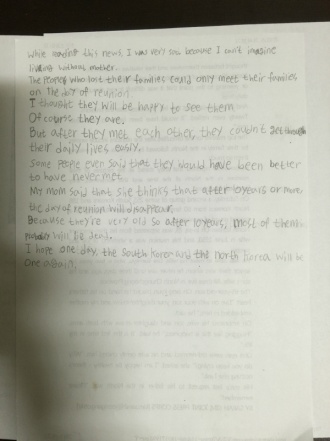 While reading this news, I was very sad because I can't imagine
living without mother.
The people who lost their families could only meet their families
on the day of reunion.
I thought they will be happy to see them
Of course they are.
But after they met each other, they couldn't get through
their daily lives easily.
Some people even said that they would have been better
to have never met.
My mom said that she thinks that after 10 years or more,
the day of reunion will disappear.
Because they're very old so after 10 years, most of them
probably will be dead.
I hope one day, the South Korea and the north Korea will be
one again!